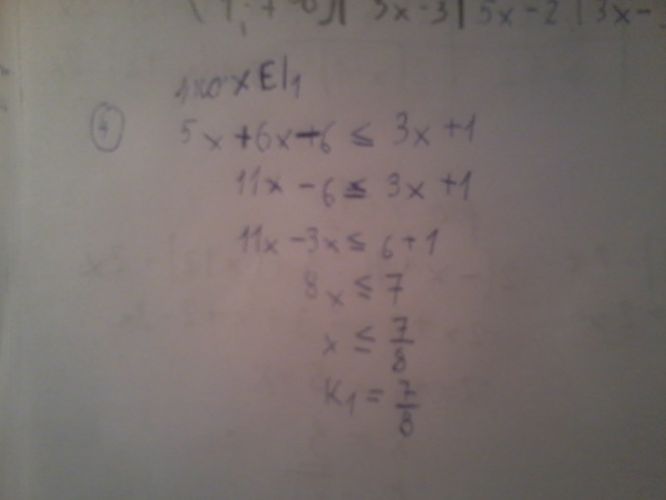 3x-3 | 5x-2 | 3x-
x ∈ I₁
4 5x+6x-6 ≤ 3x+1
11x-6 ≤ 3x+1
11x-3x ≤ 6+1
8x ≤ 7
x ≤ 7/8
K₁ = 7/8